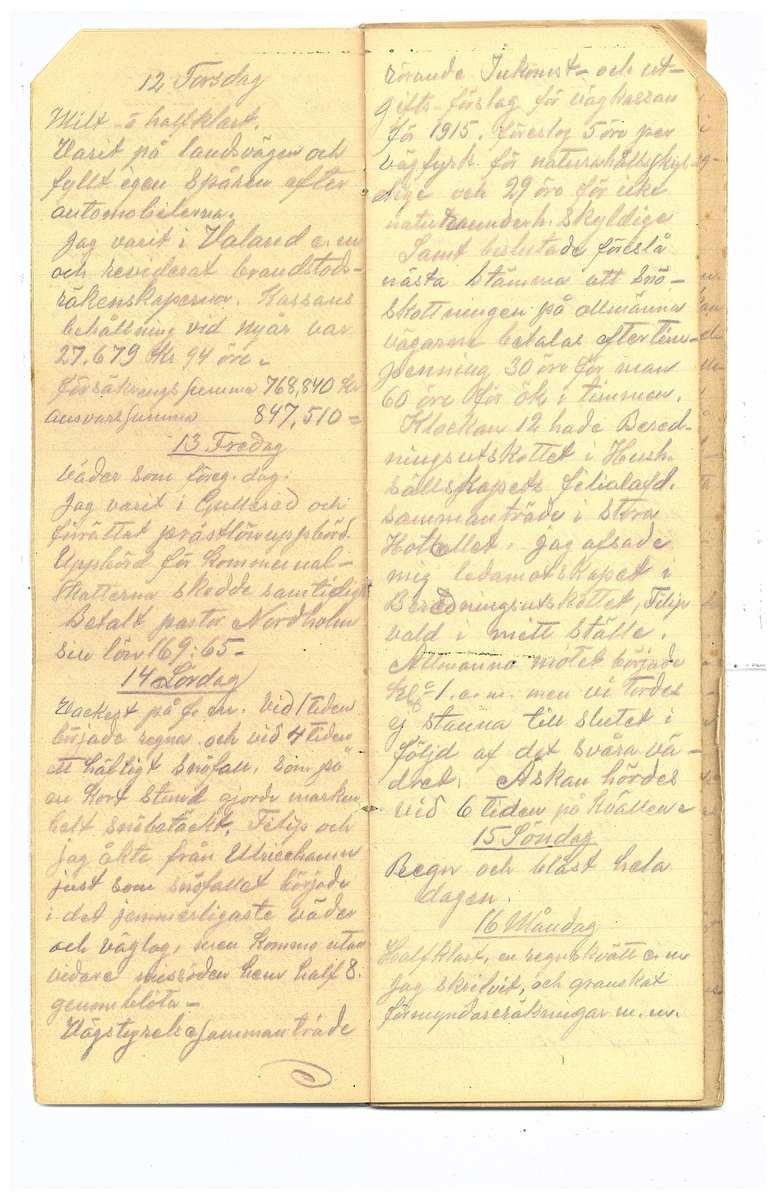 12 Torsdag
Milt - o halfklart.
Varit på landsvägen och
fyllt igen spåren efter
automobilerna.
Jag varit i Valared e. m
och reviderat brandstods-
räkenskaperna. Kassans
behållning vid nyår var
27.679 Kr 94 öre.
försäkringssumma 768,840 kr
ansvarssumma 847,510 =
13 Fredag
Väder som föreg. dag.
Jag varit i Gullered och
förrättat prästlöneuppbörd.
Uppbörd för kommunal-
skatterna skedde samtidigt
Betalt pastor Nordholm
sin lön 169:65 -
14 Lördag
Vackert på f. m. Vid 1 tiden
började regna och vid 4 tiden
ett häftigt snöfall, som på
en kort stund gjorde marken
helt snöbetäckt. Filip och
jag åkte från Ulricehamn
just som snöfallet började
i det jemmerligaste väder
och väglag, men kommo utan
vidare missöden hem half 8.
genomblöta -
Vägstyrelsesammanträde
rörande Inkomst- och ut-
gifts-förslag för vägkassan
för 1915. föreslog 5 öre per
vägfyrk för naturahållskyl-
dige och 29 öre för icke
naturaunderh. skyldige
Samt beslutade föreslå
nästa stämma att snö-
skottningen på allmänna
vägarne betalas efter tim-
penning 30 öre för man
60 öre för ök i timmen.
Klockan 12 hade Bered-
ningsutskottet i Hush.
sällskapets filialafd.
sammanträde i Stora
Hotellet. Jag afsade
mig ledamotskapet i
Beredningsutskottet, Filip
vald i mitt ställe.
Allmänna mötet började
Kl 1. e. m. men vi tordes
ej stanna till slutet i
följd af det svåra vä-
dret. Åskan hördes
vid 6 tiden på kvällen
15 Söndag
Regn och blåst hela
dagen.
16 Måndag
Halfklart, en regnskvätt e. m
Jag skrifvit, och granskat
förmyndareräkningar m. m.